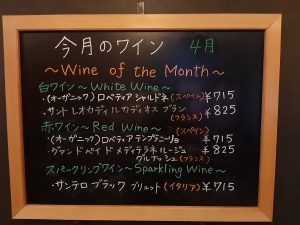 今月のワイン 4月
～Wine of the Month～
白ワイン～White Wine～
・(オーガニック)ロベティア シャルドネ(スペイン)¥715
・サントレオカディ ルカディオス ブラン ¥825
(フランス)
赤ワイン～Red Wine～
(スペイン)
・(オーガニック)ロベティア テンプラニーリョ ¥715
・グランド ペイド メディテラネ ルージュ ¥825
グルナッシュ(フランス)
スパークリングワイン～Sparkling Wine～
・サンテロ ブラック ブリュット(イタリア)¥715